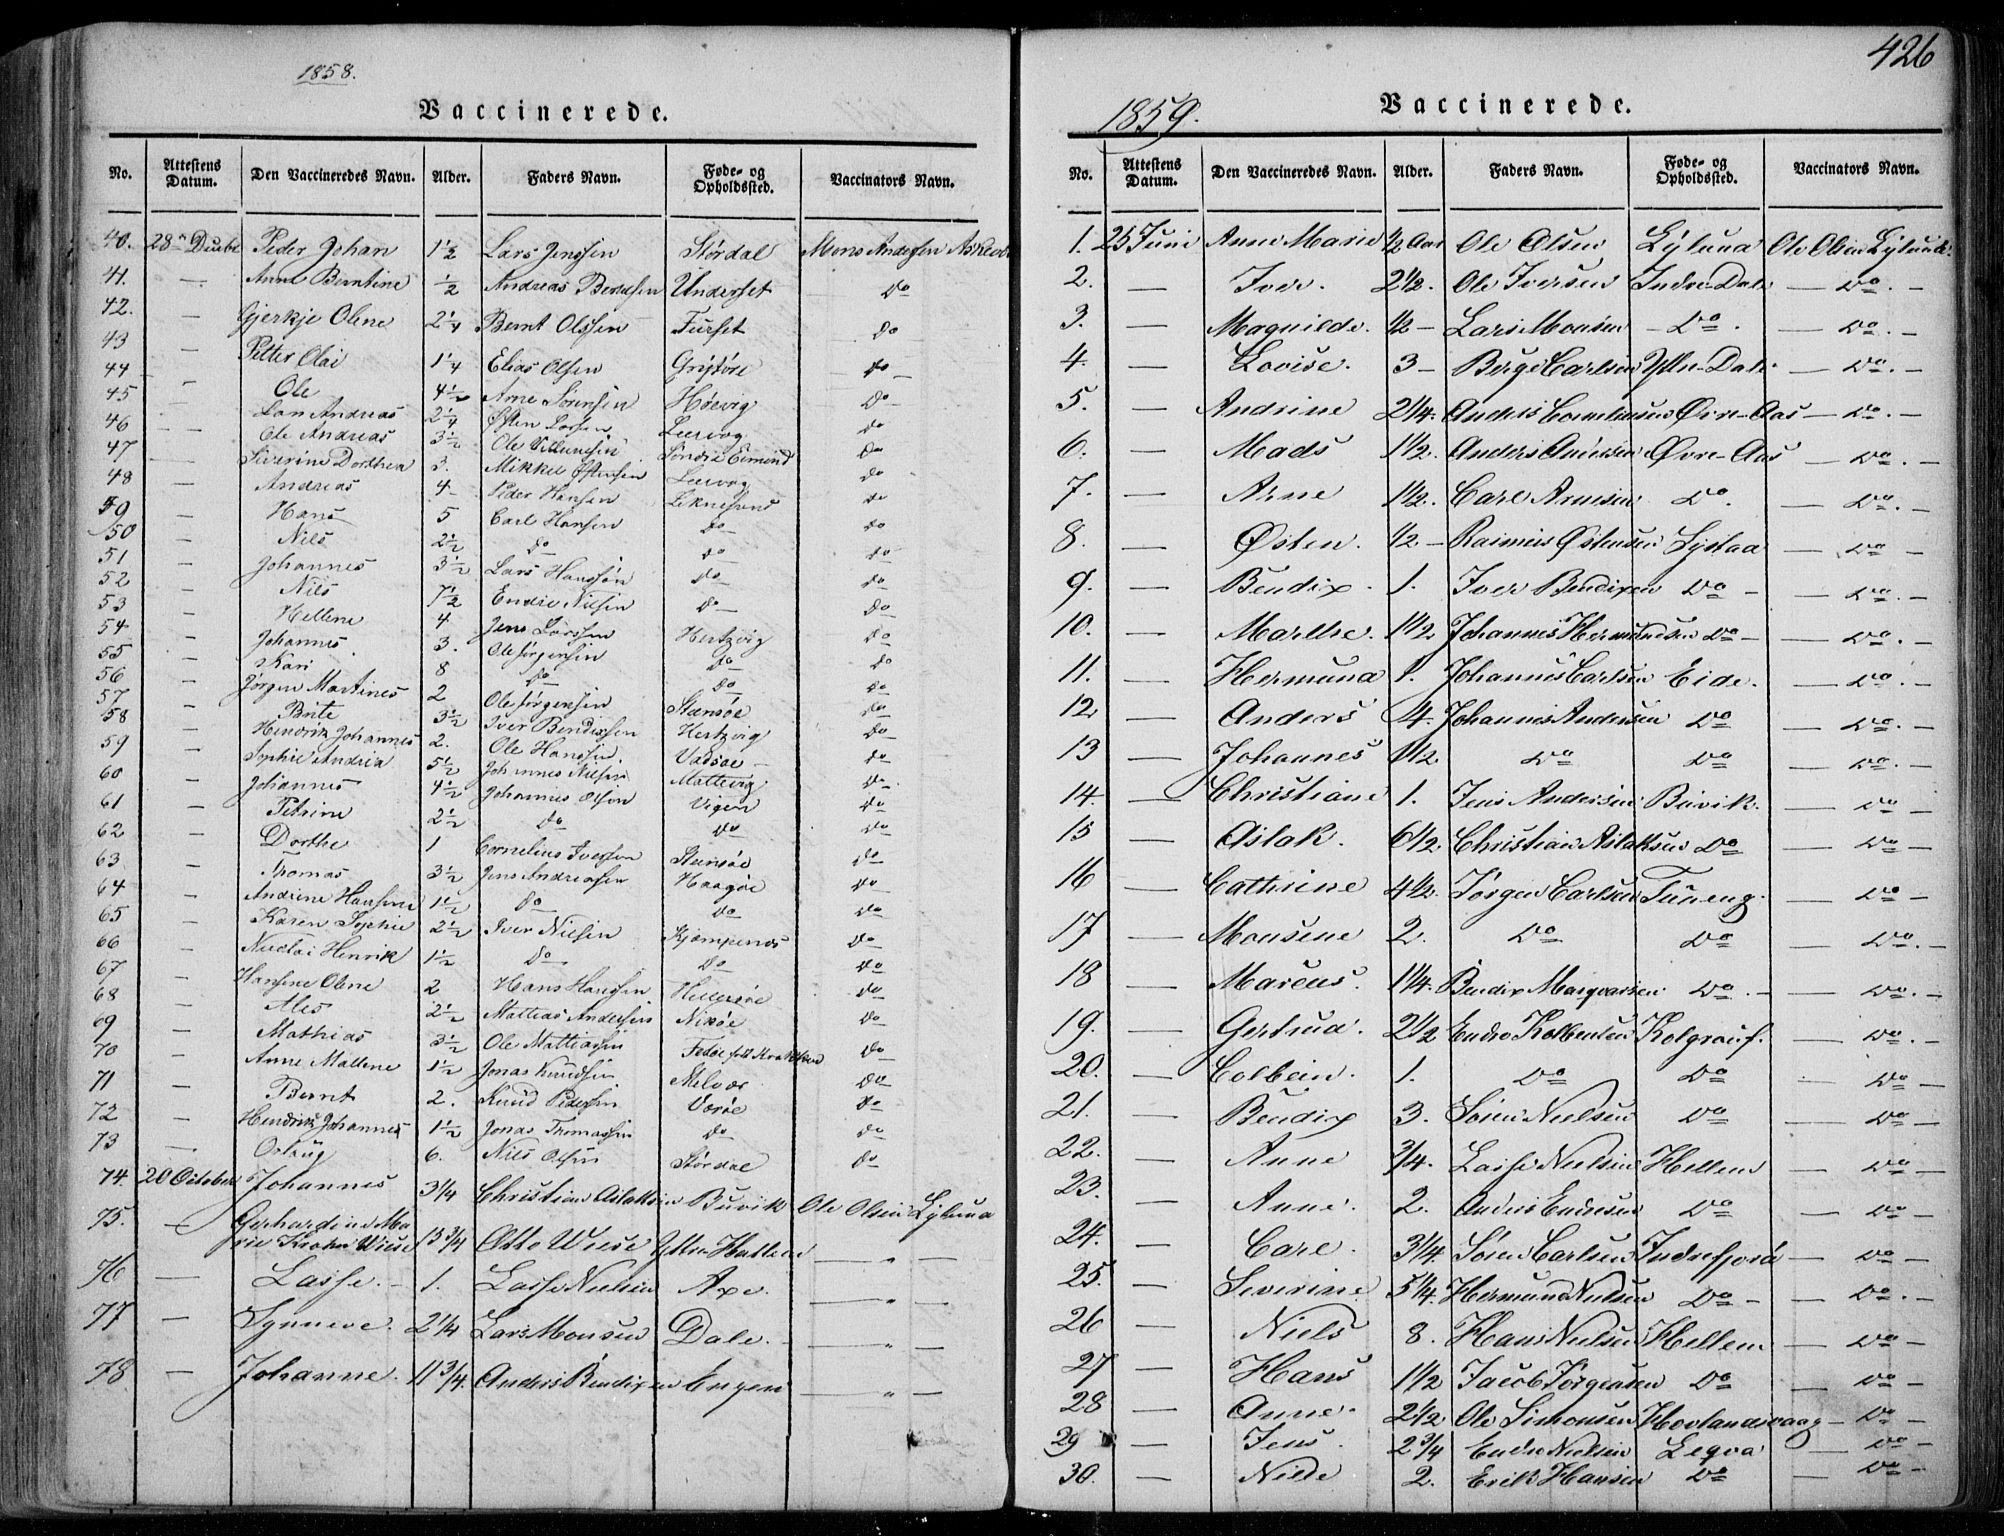 1858.
Vaccinerede.
No. Attestens Datum. Den Vaccineredes Navn. Alder. Faders Navn. Føde- og Opholdssted. Vaccinators Navn.
40. 28 Peder Johan 1½ Lars Jenssen Størdal Mons Andersen
41. — Anne Berntine ½ Andreas Berntsen Underset do
42. — Gjerkje Olene 2¼ Bernt Olssen Furset do
43 — Petter Olai 1¼ Elias Olsen do
44 — Ole 4½ Arne Sørensen Høevig do
45 — Lars Andreas 2¼ Østen Larsen Leervog do
46 — Ole Andreas 3½ Ole Søndre Eimind do
47 — Siverine Dorthea 3. Mikkel Østensen Leervog do
48 — Andreas 4 Peder Hansen do
49 — Hans 5 Carl Hansen do do
50 — Nils 2½ do do do
51 — Johannes 3½ Lars Hanssøn do do
52 — Nils 7½ Endre Nilsen do do
53 — Hellene 4 Jens Larssen Hertzvig do
54 — Johannes. 3. Ole Jørgensen do do
55 — Kari 8 do do do
56 — Jørgen Martines 2 Ole Jørgensen Steensøe do
57 — Brite 3½ Iver Bendixsen Hertzvig do
58 — Hendrik Johannes 2. Ole Hanssen. Vadsøe do
59 — Sophie Andrea 5½ Johannes Nilsen Mattevig do
60 — Johannes 4½ Johannes Olsen Vigen do
61 — Petrine 2½ do do do
62 — Dorthe 1 Cornelius Iversen Steensøe do
63 — Thomas 3½ Jens Andreassen Haagøe do
64 — Andrine Hansine 1½ do do do
65 — Karen Sophie 2½ Iver Nilsen Kjempenes do
66 — Nicolai Henrik 1½ do do do
67 — Hansine Olene 2 Hans Hanssen Hillersøe do
68 — Ales 2½ Mattias Andersen Nisøe do
69 — Mathias 3½ Ole Mattiassen do
70 — Anne Mallene 1½ Jonas Knudsen Melvær do
71 — Bernt 2. Knud Pedersen Værøe do
72 — Hendrik Johannes 1½ Jonas Thomassen do do
73 — Oslaug 6. Nils Olsen Størdal do
74. 20 October Johannes 3¼ Christian Aslaksen Buvik Ole Olsen Lylund
75. — Gerhardine Ma
rie Krohn Wiese 13¾ Otto Wiese Yttre Hatlem — „ —
76 — Lasse. 1. Lasse Nielsen Axe. — „ —
77 — Synneve. 2¼ Lars Monsen Dale. — „ —
78. — Johanne. 11¾. Anders Bendixen Engen — „ —
426
1859.
Vaccinerede.
No. Attestens Datum. Den Vaccineredes Navn. Alder. Faders Navn. Føde- og Opholdssted. Vaccinators Navn.
1. 25 Juni Anne Marie ½ Aar Ole Olsen Lylund Ole Olsen Lylund.
2. — Iver. 2½. Ole Iversen Indre-Dale — do. —
3. — Magnilde. ½ — Lars Monsen — do. — do. —
4. — Lovise. 3 — Børge Carlsen Yttre-Dale — do. —
5. — Andrine 2¼. Anders Cornelius​en Øvre-Aas — do. —
6. — Mads 1½. Anders Andersen Øvre-Aas — do. —
7. — Arne 1½. Carl Arnesen do. — do. —
8. — Østen. ½ — Rasmus Østensen Systad — do —
9. — Bendix. 1. Iver Bendixen do — — do. —
10. — Marthe. 1½ Johannes Hermundsen do — — do. —
11. — Hermund 1. Johannes Carlsen Eide. — do. —
12 — Anders 4. Johannes Andersen do — do. —
13 — Johannes 1½ do do — do. —
14. — Christiane 1. Jens Andersen Buvik. — do —
15 — Aslak. 6½. Christian Aslaksen do — do —
16 — Cathrine 4½. Jørgen Carlsen Tuneng. — do —
17 — Monsine 2. do do — do. —
18 — Marcus. 1¼. Bendix Marqvarsen do. — — do. —
19. — Gertrud. 2½ Endre Kolbensen Kolgrouf. — do —
20. — Colbein. 1. do do — do —
21. — Bendix 3. Søren Nielsen do — do —
22. — Anne ¾. Lasse Nielsen Hellem — do —
23. — Anne. 2. Anders Endresen do — do —
24. — Carl. 3¼. Søren Carlsen Indrefjord — do —
25. — Severine. 5¼. Hermund Nielsen do — — do. —
26 — Niels 8. Hans Nielsen Hellem — do —
27 — Hans 1½ Jacob Jørgensen do — do —
28 — Anne. 2½ Ole Simonsen Hovlandsvaag — do —
29 — Jens. 2¾ Endre Nielsen Leqva — do —
30. — Nilde 2. Erik Hansen do — do —